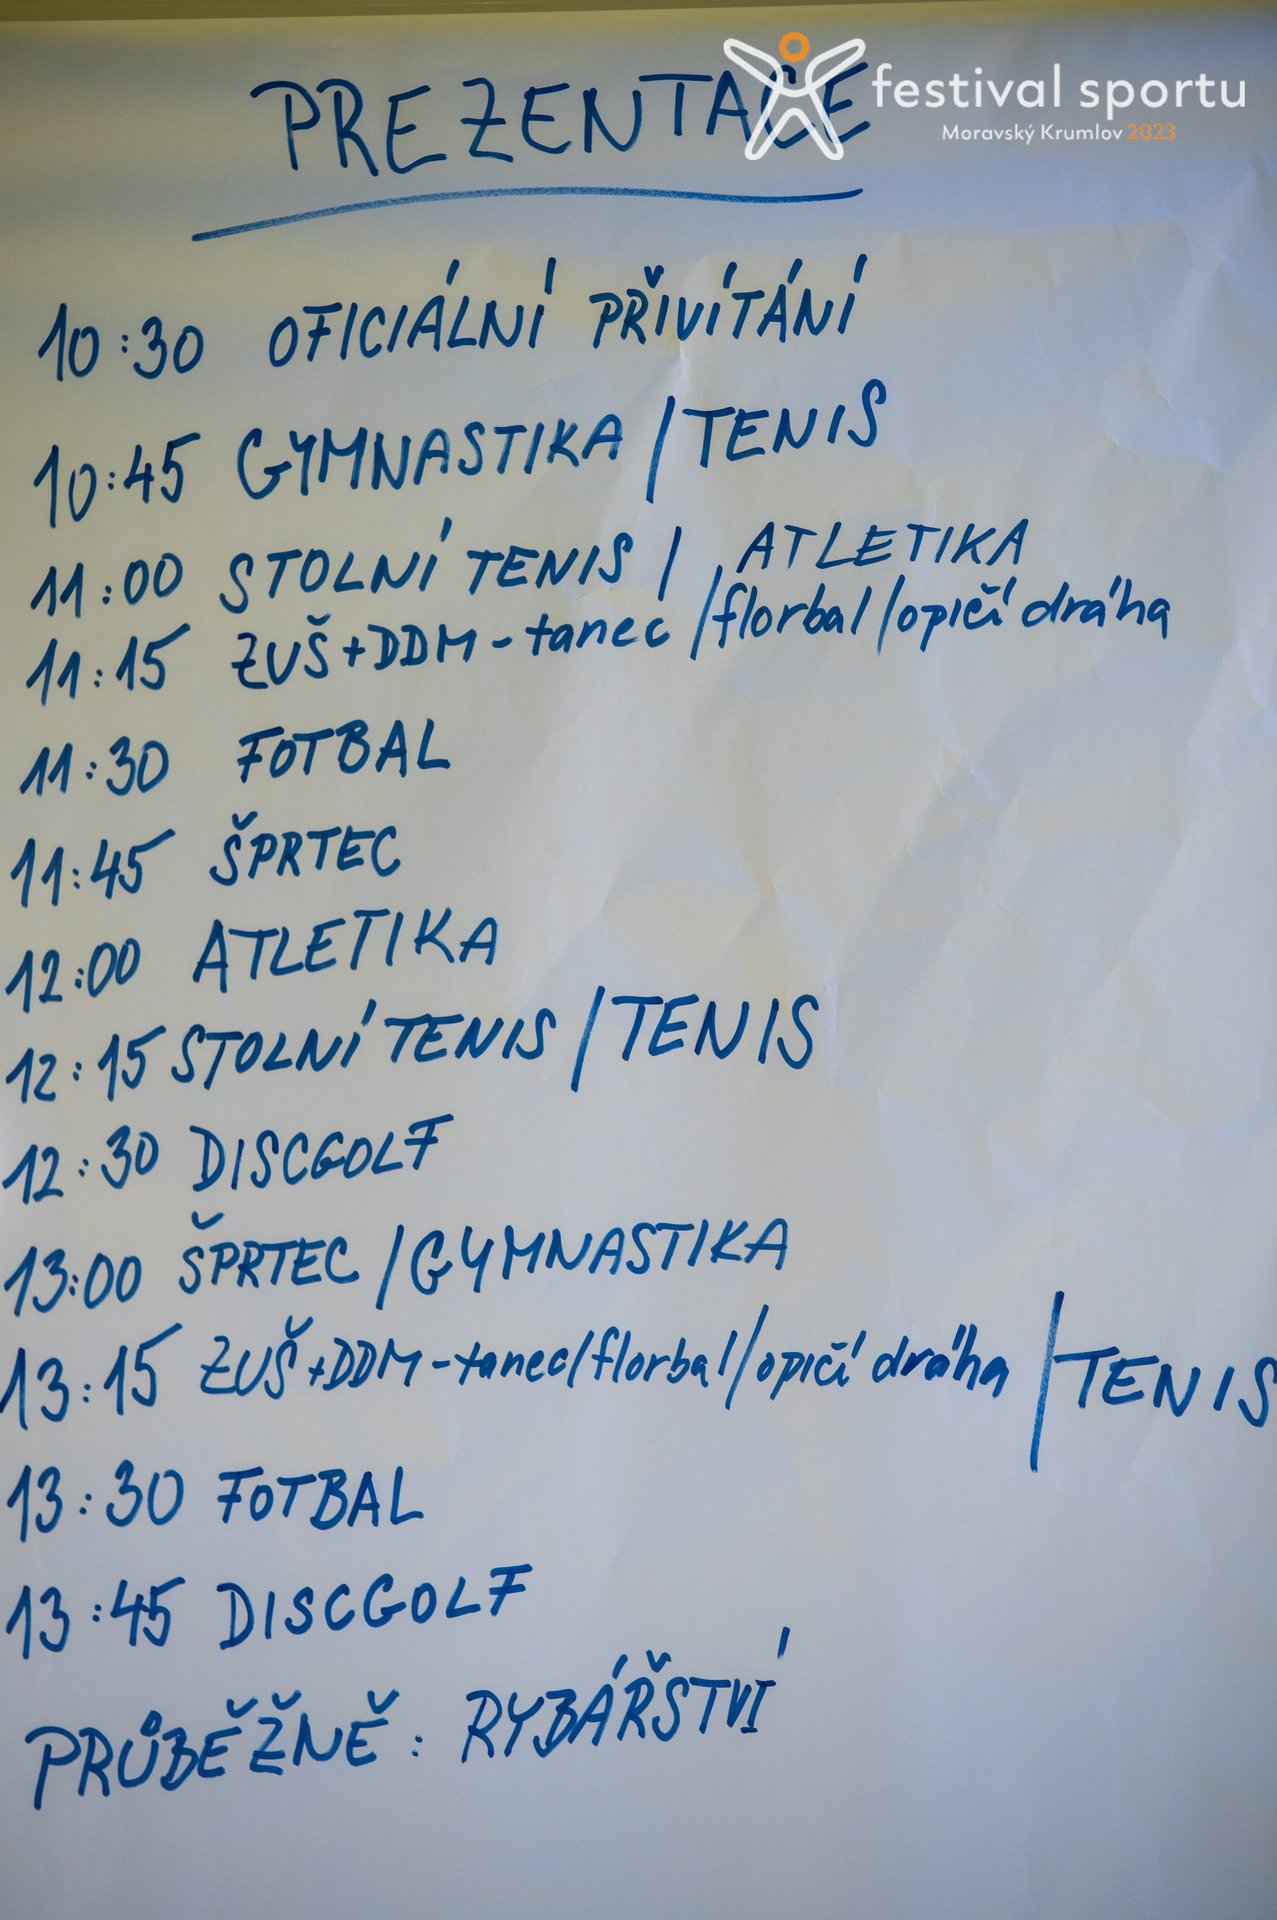 PREZENTACE
festival sportu
Moravský Krumlov 2023
10:30 OFICIÁLNÍ PŘIVÍTÁNÍ
10:45 GYMNASTIKA / TENIS
11:00 STOLNÍ TENIS / ATLETIKA
11:15 ZUŠ+DDM-tanec /florbal/opičí dráha
11:30 FOTBAL
11:45 ŠPRTEC
12:00 ATLETIKA
12:15 STOLNÍ TENIS /TENIS
12:30 DISCGOLF
13:00 ŠPRTEC /GYMNASTIKA
13:15 ZUŠ+DDM-tanec/florbal/opičí dráha /TENIS
13:30 FOTBAL
13:45 DISCGOLF
PRŮBĚŽNĚ: RYBÁŘSTVÍ